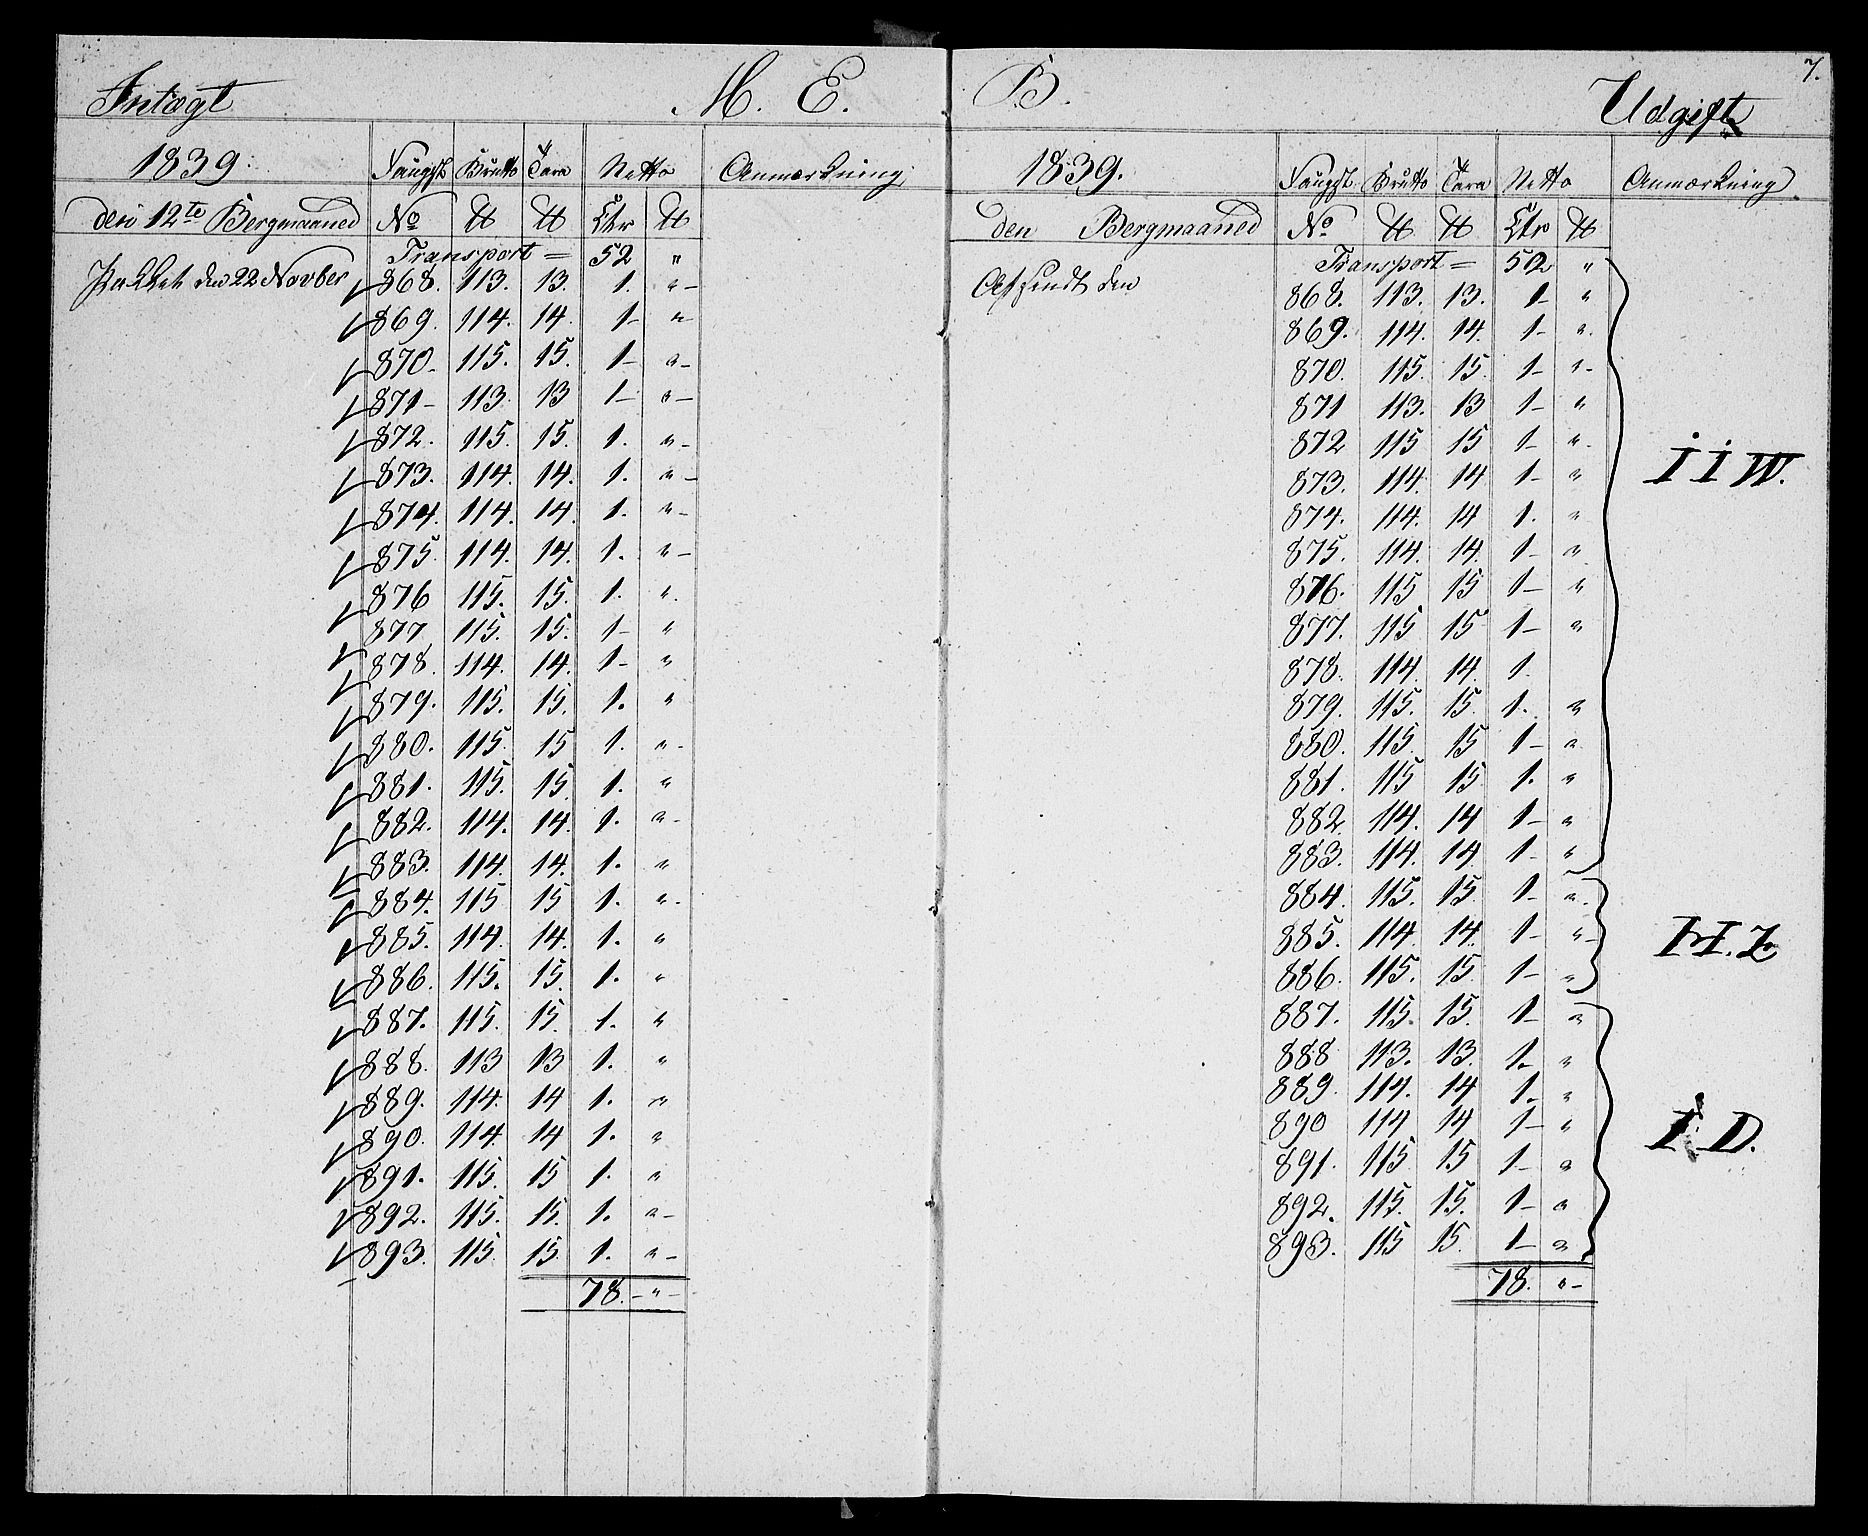 Intægt M. E.
1839. Faugst. Brutto Tara Netto Anmærkning.
den 12te Bergmaaned No ℔ ℔ Ctr ℔
Transport = 52 "
Pakket den 22 Novber 868. 113. 13. 1. " -
869. 114. 14. 1- " -
870- 115. 15. 1- " -
871- 113. 13 1- " -
872. 115. 15. 1. " -
873. 114. 14. 1. " -
874. 114. 14. 1. " -
875. 114. 14. 1. " -
876 115. 15. 1. ".
877 115. 15. 1- "
878. 114. 14. 1- "
879. 115. 15. 1. "
880. 115. 15 1. " -
881. 115. 15. 1. "
882. 114. 14. 1. " -
883. 114. 14. 1. "
884. 115 15 1. ".
885. 114. 14. 1. "
886. 115. 15. 1. "
887. 115. 15. 1. "
888. 113 13 1. "
889. 114. 14 1. "
890. 114. 14 1. "
891. 115. 15 1. "
892. 115. 15. 1. " -
893. 115 15. 1. " -
78. - " -
B. Udgift 7.
1839. Faugst. Brutto Tara Netto Anmærkning.
den Bergmaaned No ℔ ℔ Ctr ℔
Transport = 52 "
Afsendt den 868. 113. 13. 1- "
869. 114. 14. 1- ".
870. 115. 15. 1- " -
871 113. 13 1- "
872 115 15 1- ".
873. 114. 14 1- " i i W.
874. 114. 14 1. "
875. 114. 14. 1- "
876. 115 15 1- "
877. 115 15 1- "
878. 114. 14. 1.
879. 115. 15 1. "
880. 115. 15 1- "
881. 115 15 1. "
882. 114. 14 1- "
883. 114. 14. 1- "
884. 115. 15. 1- ".
885. 114. 14. 1- " - H. Z
886. 115. 15. 1- "
887. 115. 15. 1- "
888 113. 13. 1. "
889. 114. 14 1. "
890 114 14 1- " i. D.
891. 115 15 1- "
892. 115. 15. 1- "
893. 115 15. 1- "
78. " -